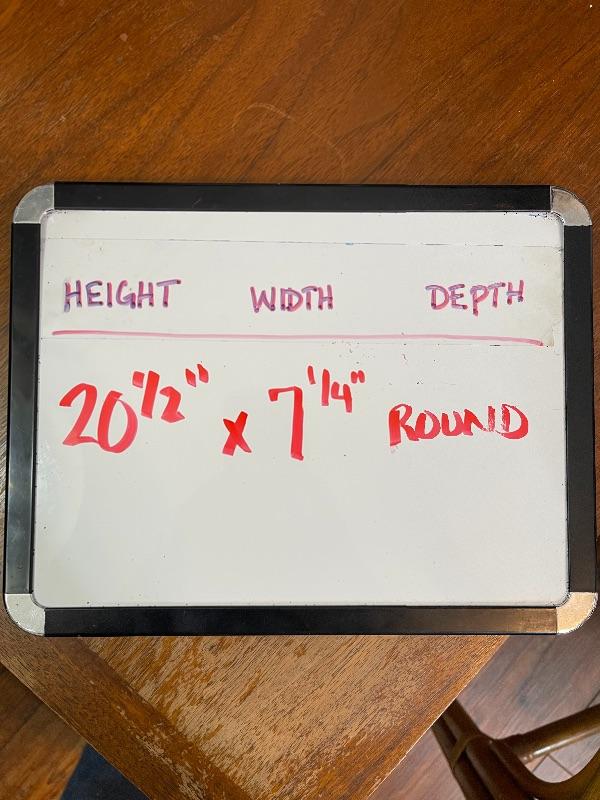 HEIGHT WIDTH DEPTH
20 1/2" x 7 1/4" ROUND